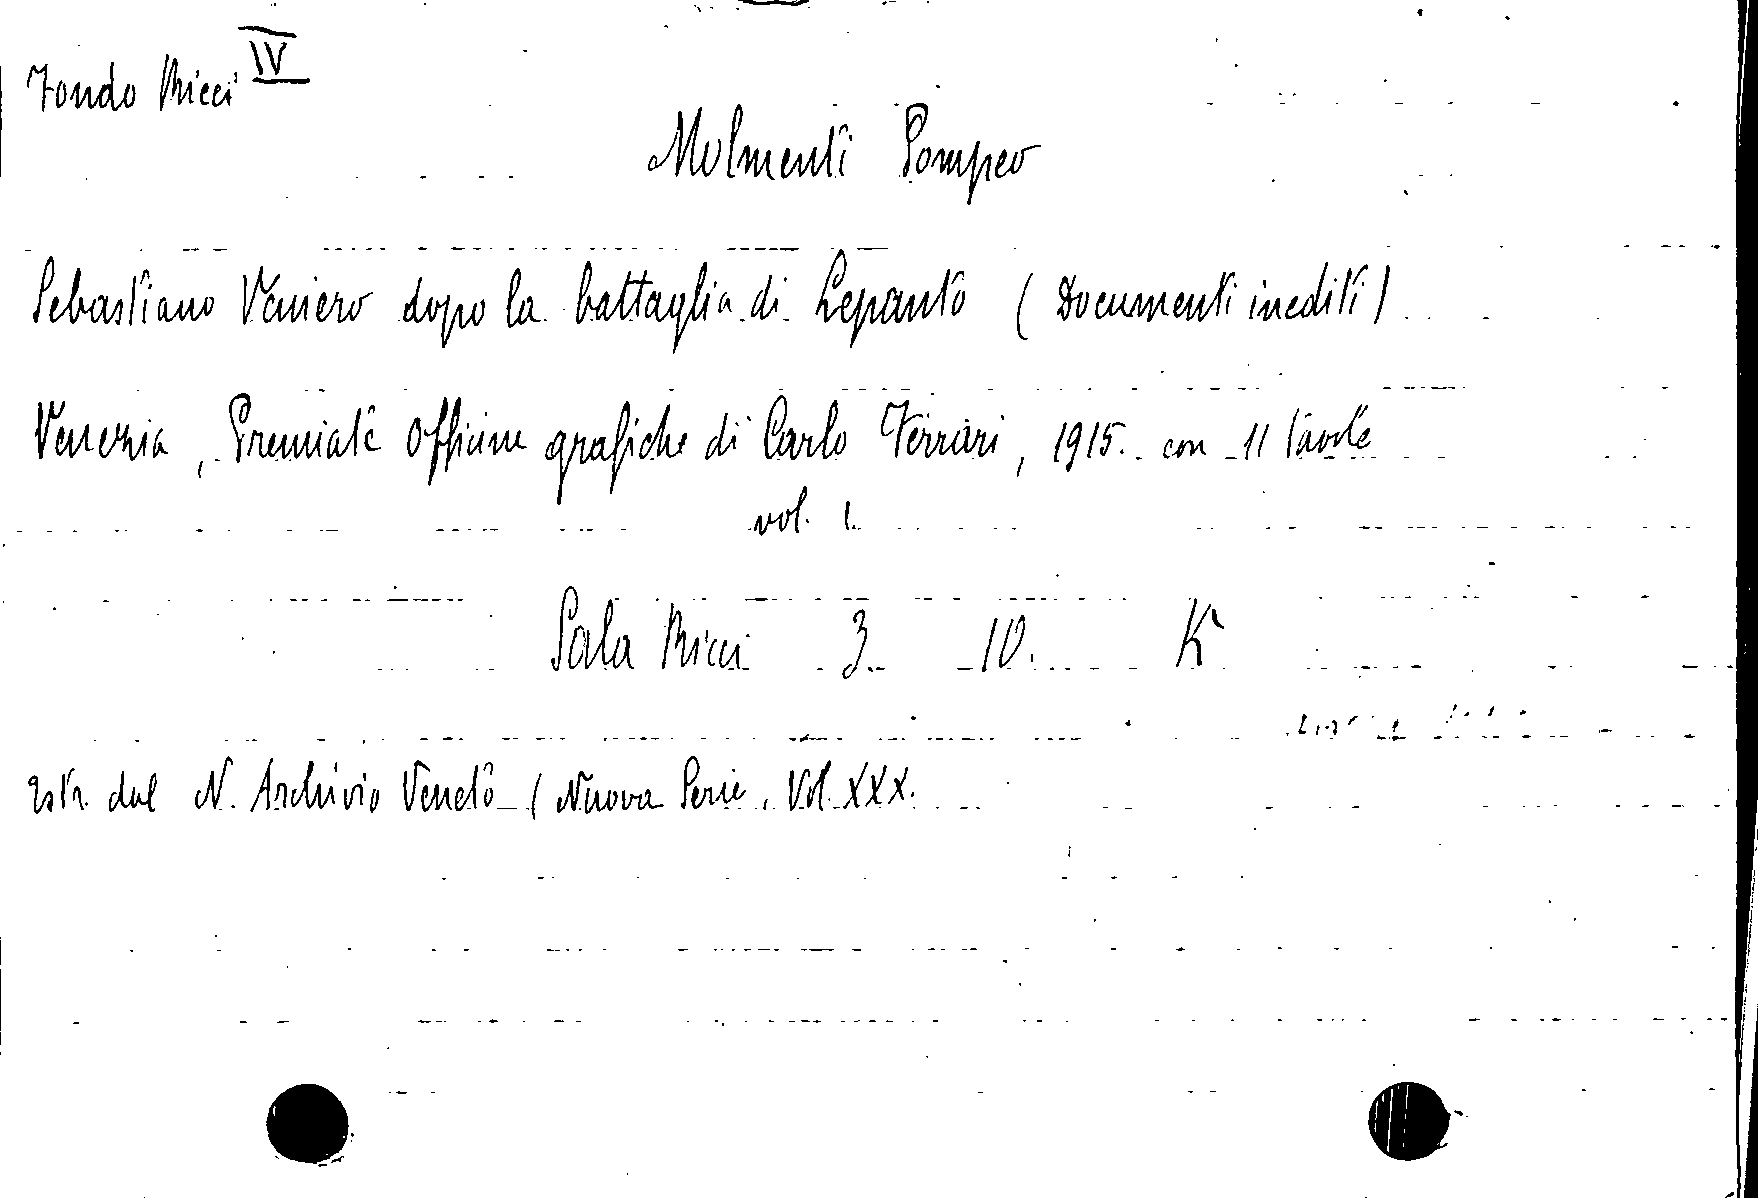 Fondo Ricci IV
Molmenti Pompeo
Sebastiano Veniero dopo la battaglia di Lepanto (Documenti inediti)
Venezia, Premiate Officine grafiche di Carlo Ferrari, 1915. con 11 tavole
vol. 1.
Sala Ricci 3. 10. K
Estr. dal N. Archivio Veneto (Nuova Serie, Vol. XXX.